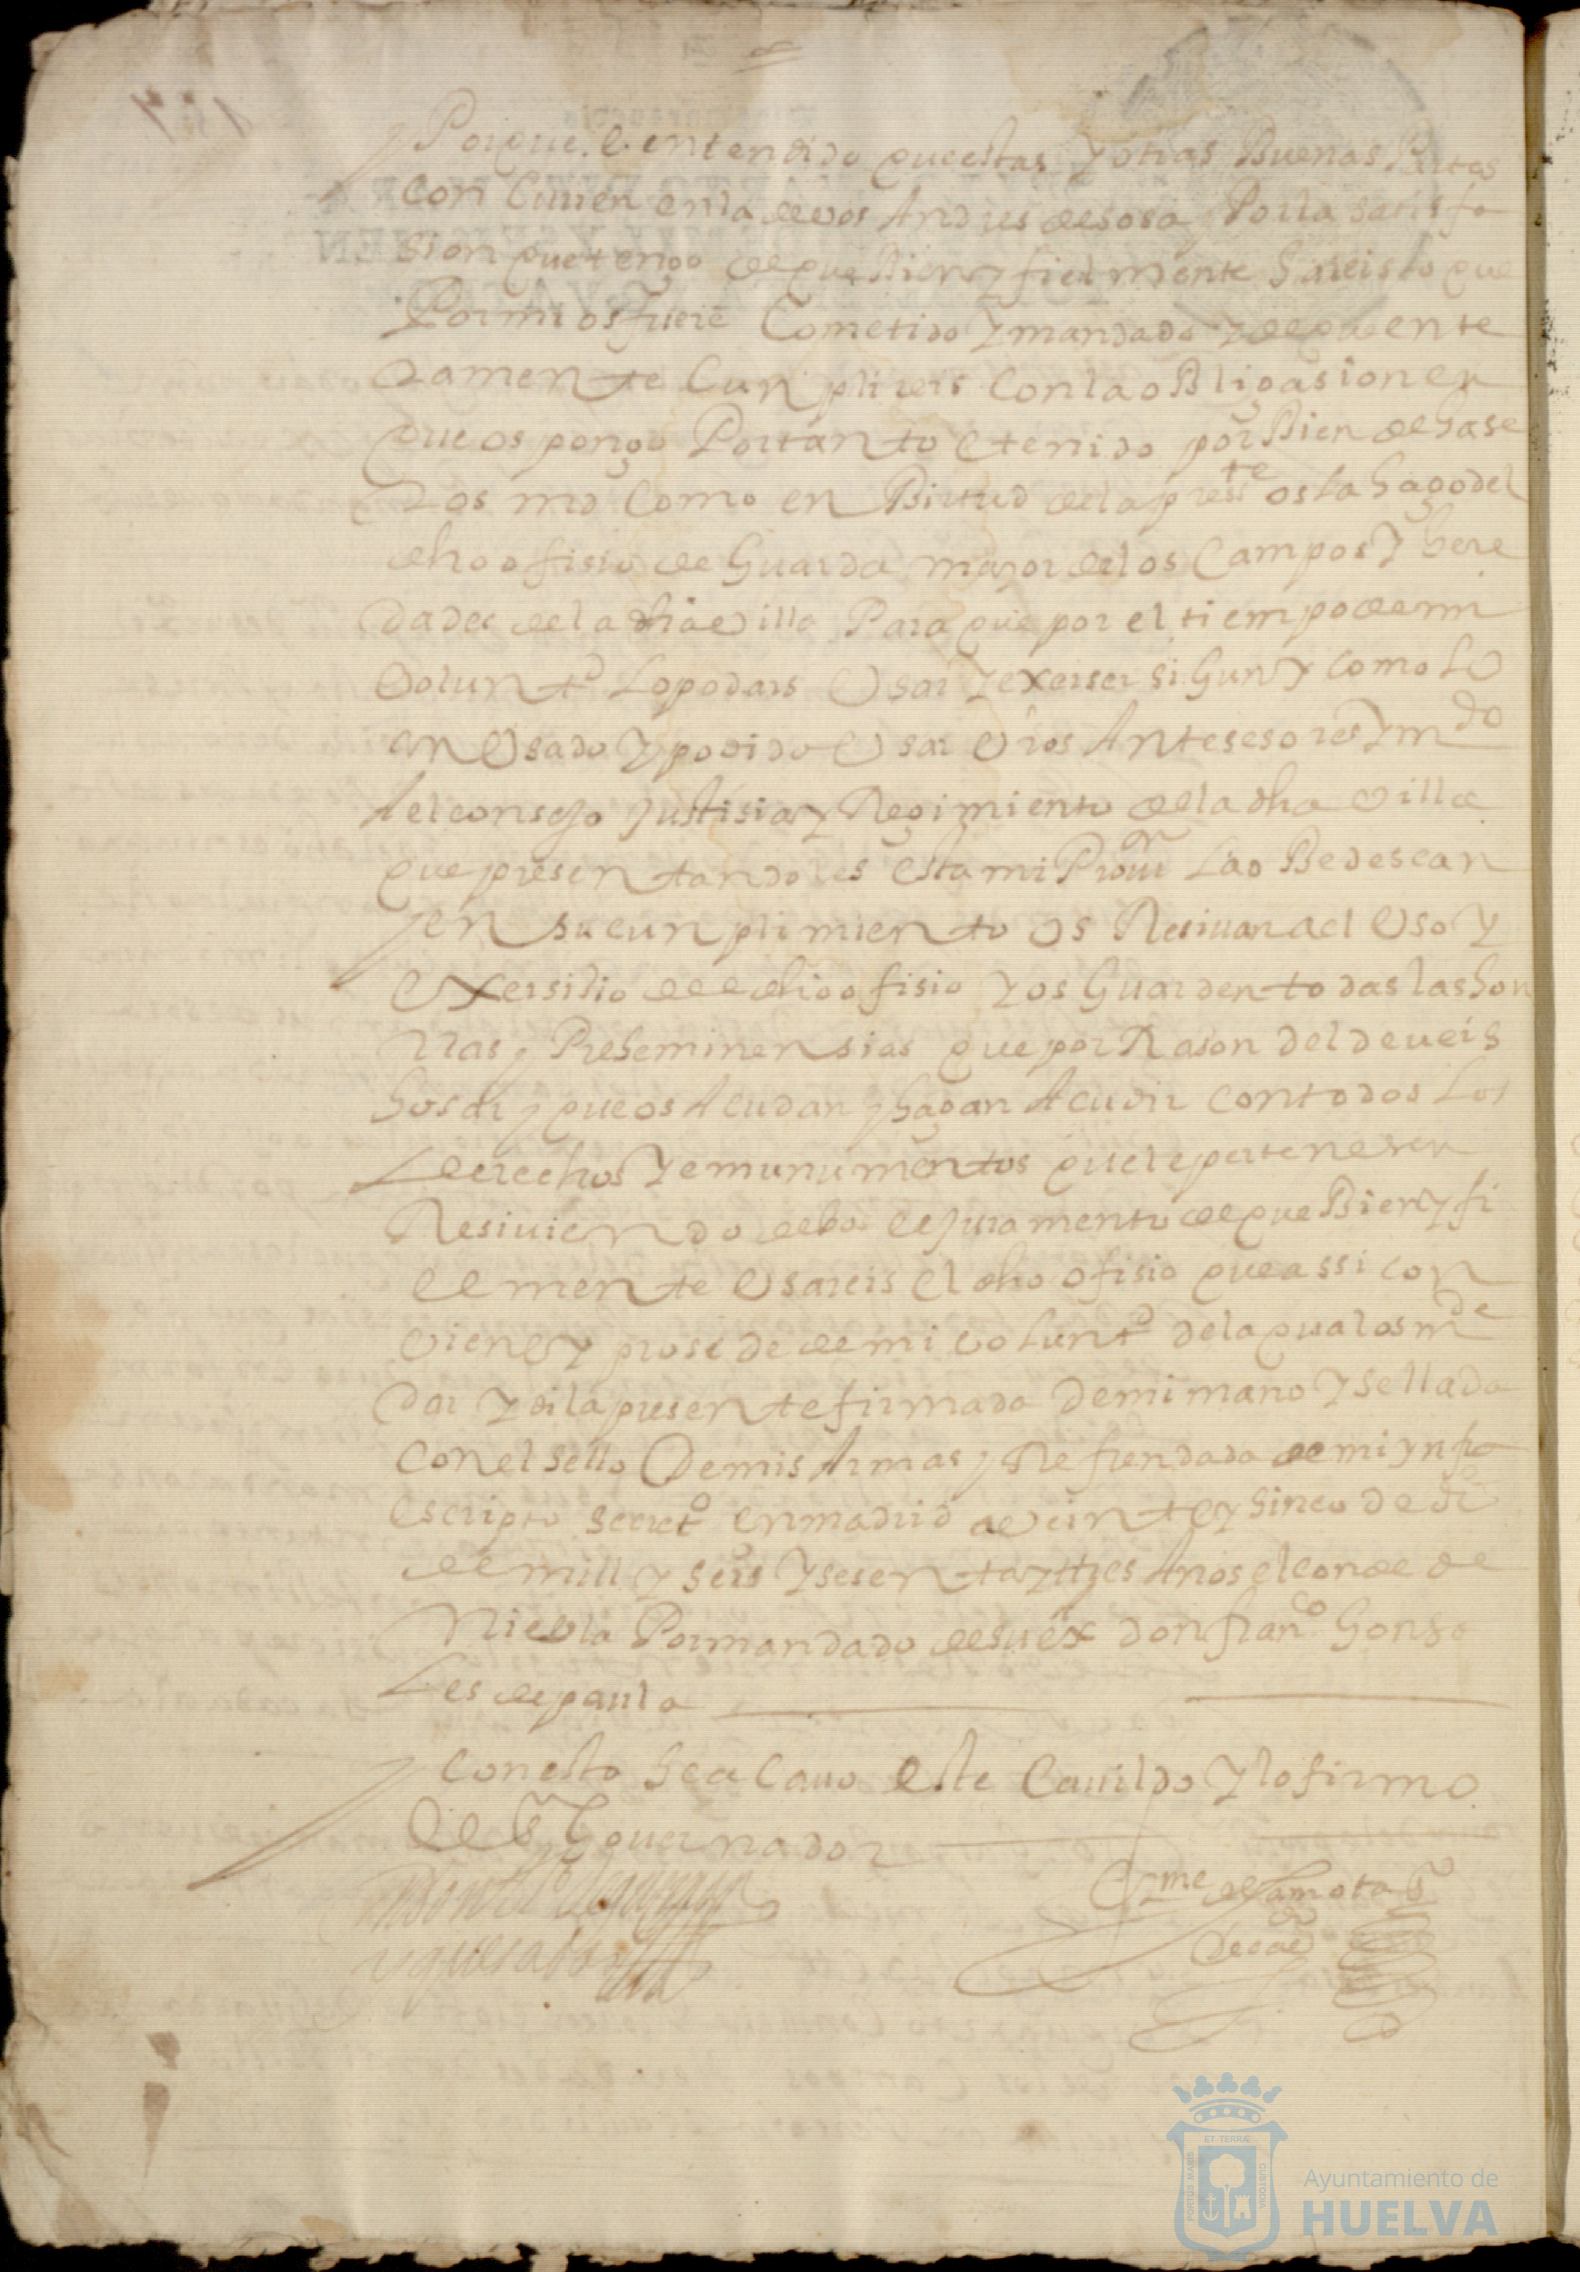 Porque e entendido que estas y otras Buenas Partes
Con Curren en la de vos Andres de sosa y Por la satisfa
sion que tengo de que Bien y fielmente hareis lo que
Por mi os fuere Cometido y mandado y de que ente
ramente Cunplireis con la oBligasion en
que os pongo Por tanto e tenido por Bien de hase
ros md Como en Birtud de la presste os la hago del
dho ofisio de Guarda mayor de los Campos y here
dades de la dha villa Para que por el tiempo de mi
Voluntd Lo podais Usar y exerser sigun y como Lo
an Usado y podido Usar Vros Antesesores y mdo
Al consejo Justisia y Regimiento de la dha villa
que presentandoles esta mi Provon La oBedescan
y en su cunplimiento os Resivan al Uso y
exersisio del dho ofisio y os Guarden todas las hon
rras y Preheminensias que por Rason del deveis
gosar y que os Acudan y hagan Acudir con todos Los
Derechos y emunumentos que le pertenesen
Resiviendo de bos el juramento de que Bien y fi
elmente Usareis el dho ofisio que assi con
viene y prosede de mi voluntd de la qual os mde
dar y di la presente firmada de mi mano y sellada
con el sello De mis Armas y Refrendada de mi ynfra
escripto secreto en madrid a veinte y sinco de
de mill y seis y sesenta y tres Años el conde de
Niebla Por mandado de su ex don franco Gonsa
Les de paula
Con esto se a Cavo este Cavildo y lo firmo
El Sr Governador
de Lamota
Ayuntamiento de
HUELVA
PORTUS MARIS
ET TERRÆ
CUSTODIA